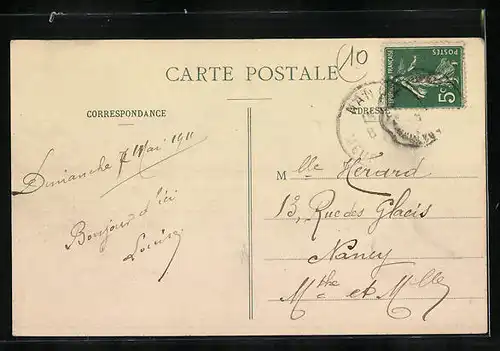 10
CARTE POSTALE
FRANÇAISE
POSTES
5c
CORRESPONDANCE
ADRESSE
Dimanche 7 Mai 1911
Bonjour d'ici
Louise
Mlle Hérard
13, Rue des Glacis
Nancy
Mthe et Mlle